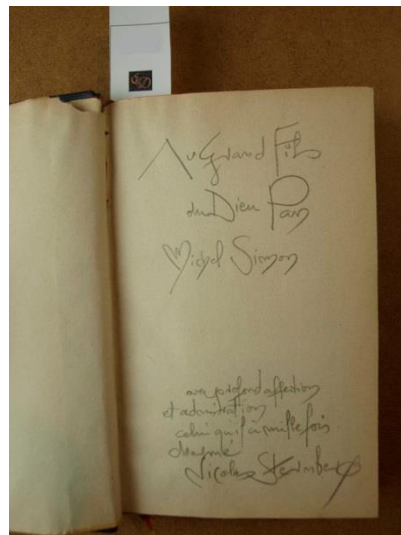 Au Grand Fils
du Dieu Pan
Michel Simon
avec profond affection
et admiration
celui qu'il a mille fois
charmé
Nicolas Sternberg